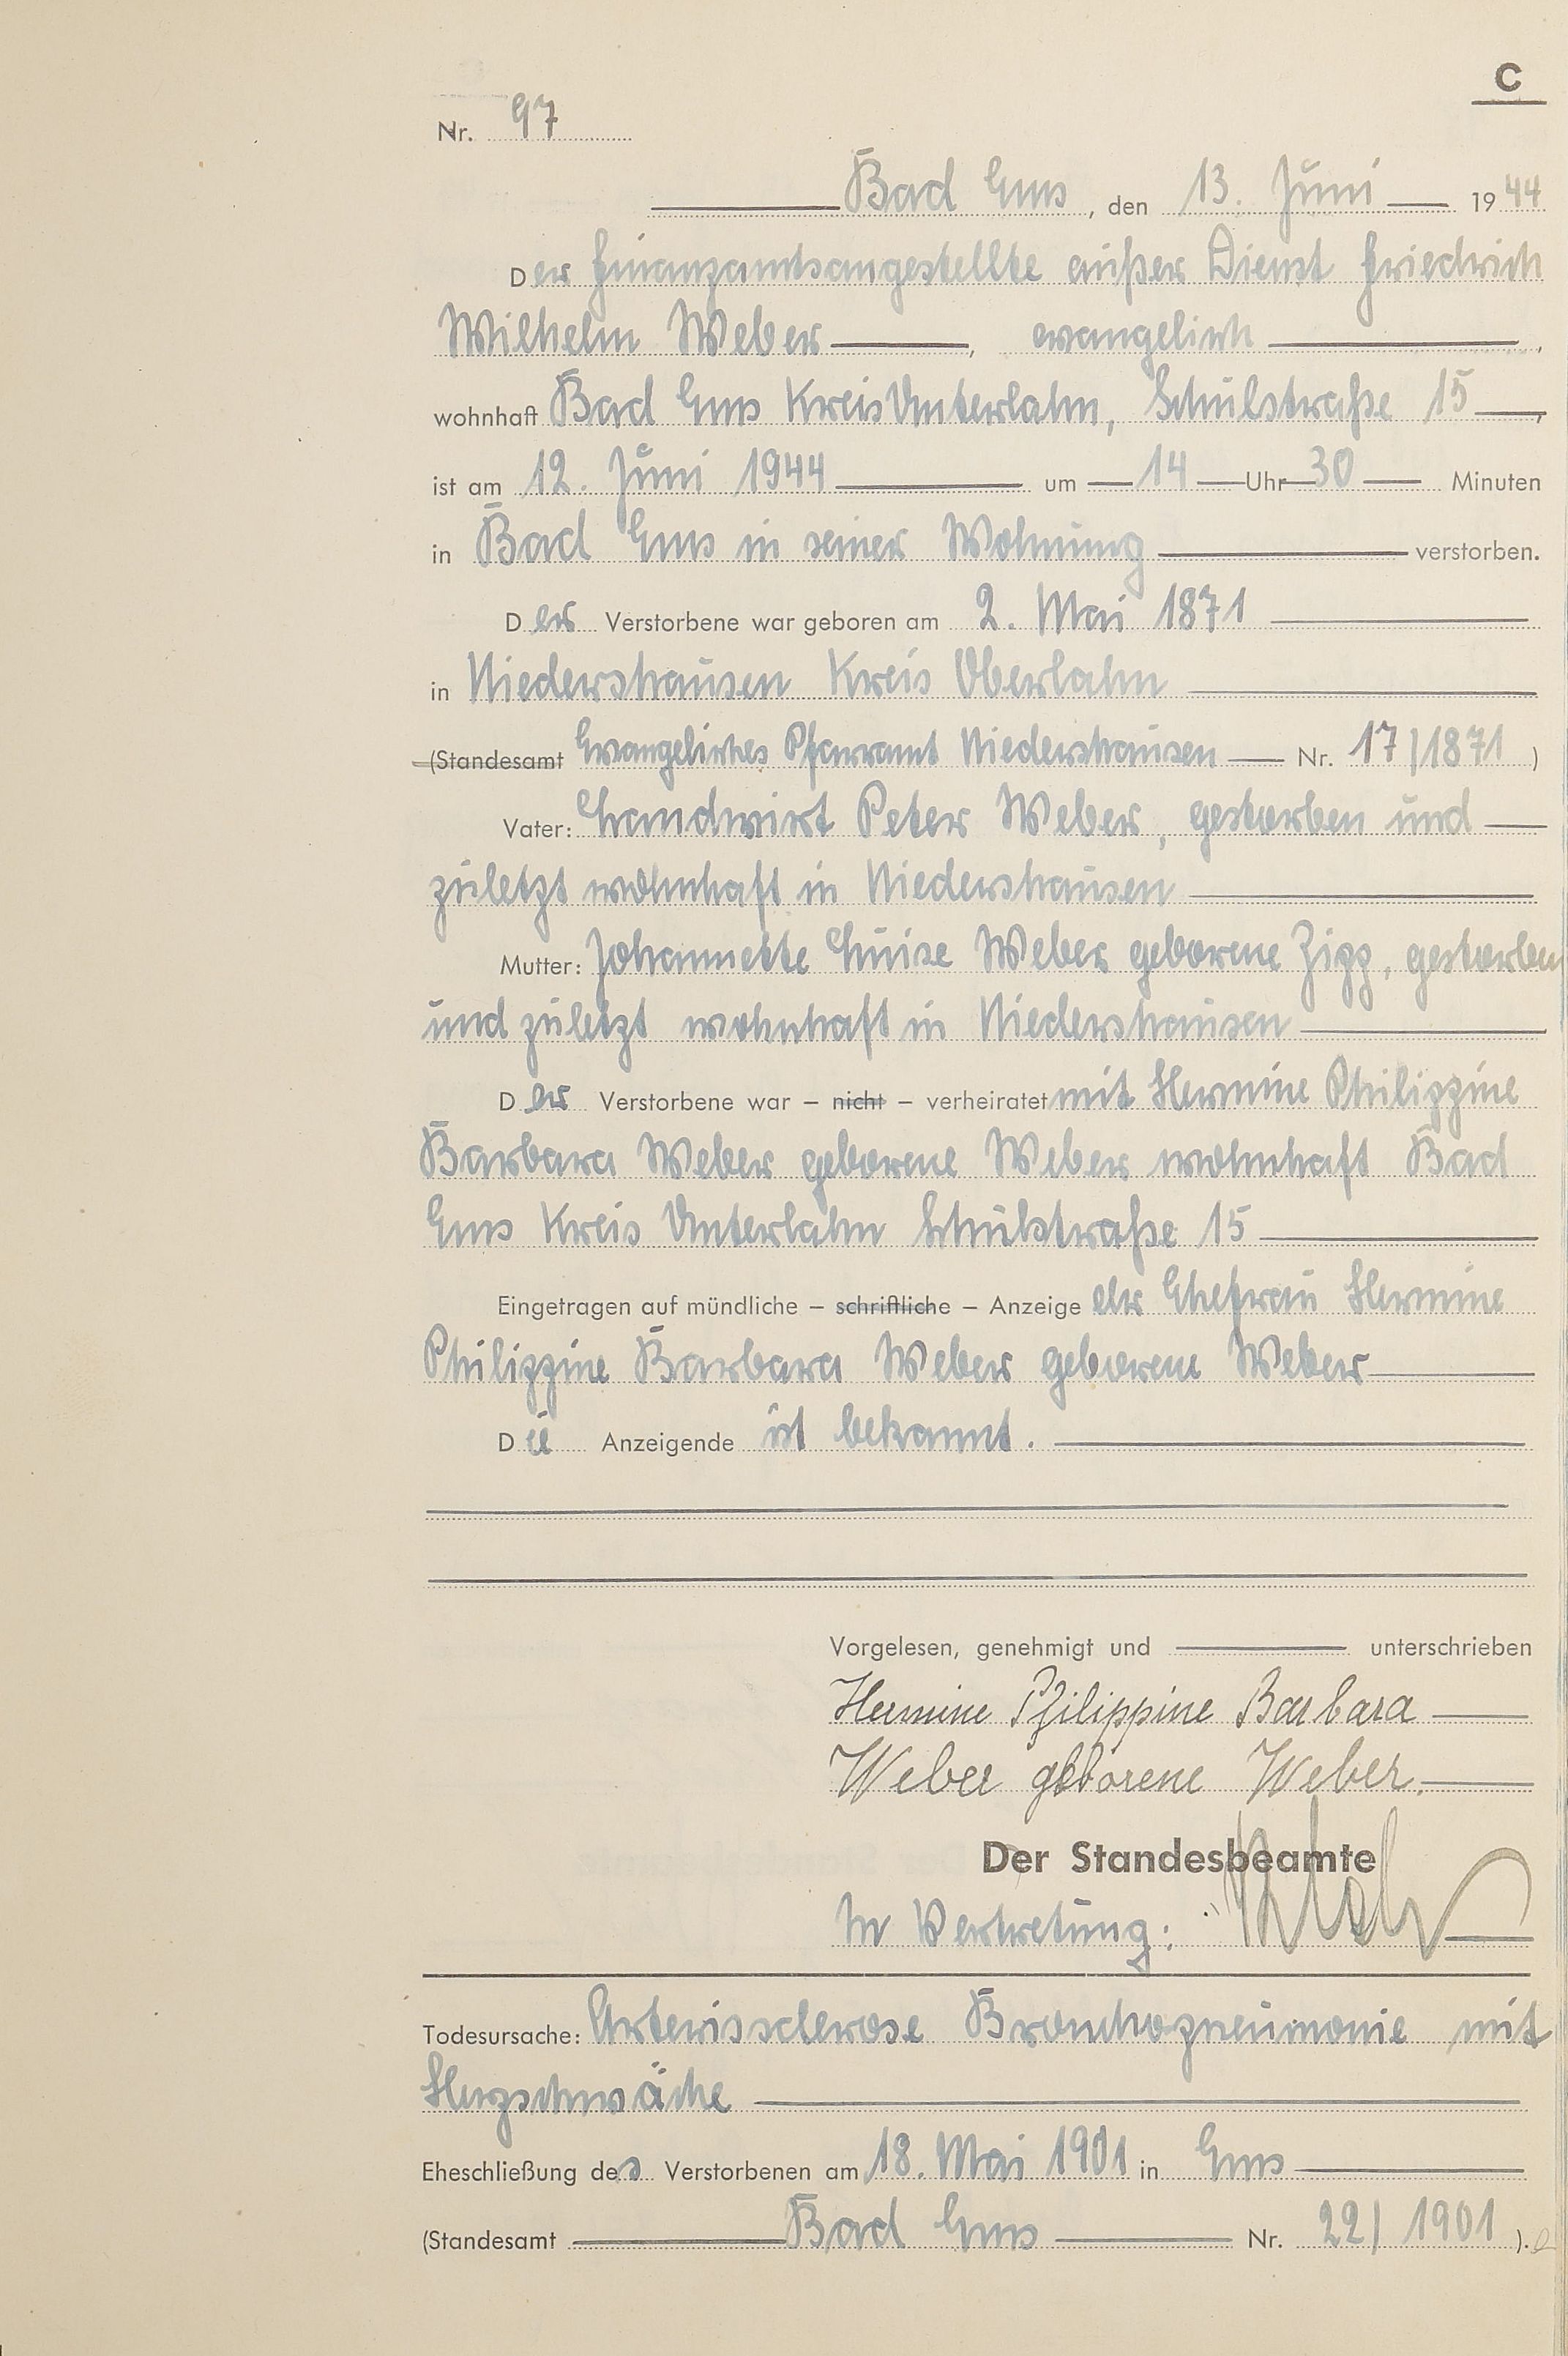 C
Nr. 97
Bad Ems, den 13. Juni 1944
Der Finanzamtsangestellte außer Dienst Friedrich
Wilhelm Weber, evangelisch,
wohnhaft Bad Ems Kreis Unterlahn, Schulstraße 15,
ist am 12. Juni 1944 um 14 Uhr 30 Minuten
in Bad Ems in seiner Wohnung verstorben.
Der Verstorbene war geboren am 2. Mai 1871
in Niedershausen Kreis Oberlahn
(Standesamt Evangelisches Pfarramt Niedershausen Nr. 17/1871)
Vater: Landwirt Peter Weber, gestorben und
zuletzt wohnhaft in Niedershausen
Mutter: Johannette Luise Weber geborene Zipp, gestorben
und zuletzt wohnhaft in Niedershausen
Der Verstorbene war – nicht – verheiratet mit Hermine Philippine
Barbara Weber geborene Weber wohnhaft Bad
Ems Kreis Unterlahn Schulstraße 15
Eingetragen auf mündliche – schriftliche – Anzeige der Ehefrau Hermine
Philippine Barbara Weber geborene Weber
Die Anzeigende ist bekannt.
Vorgelesen, genehmigt und unterschrieben
Hermine Philippine Barbara
Weber geborene Weber.
Der Standesbeamte
In Vertretung:
Todesursache: Arteriossclerose Bronchopneumonie mit
Herzschwäche
Eheschließung des Verstorbenen am 18. Mai 1901 in Ems
(Standesamt Bad Ems Nr. 22/1901).